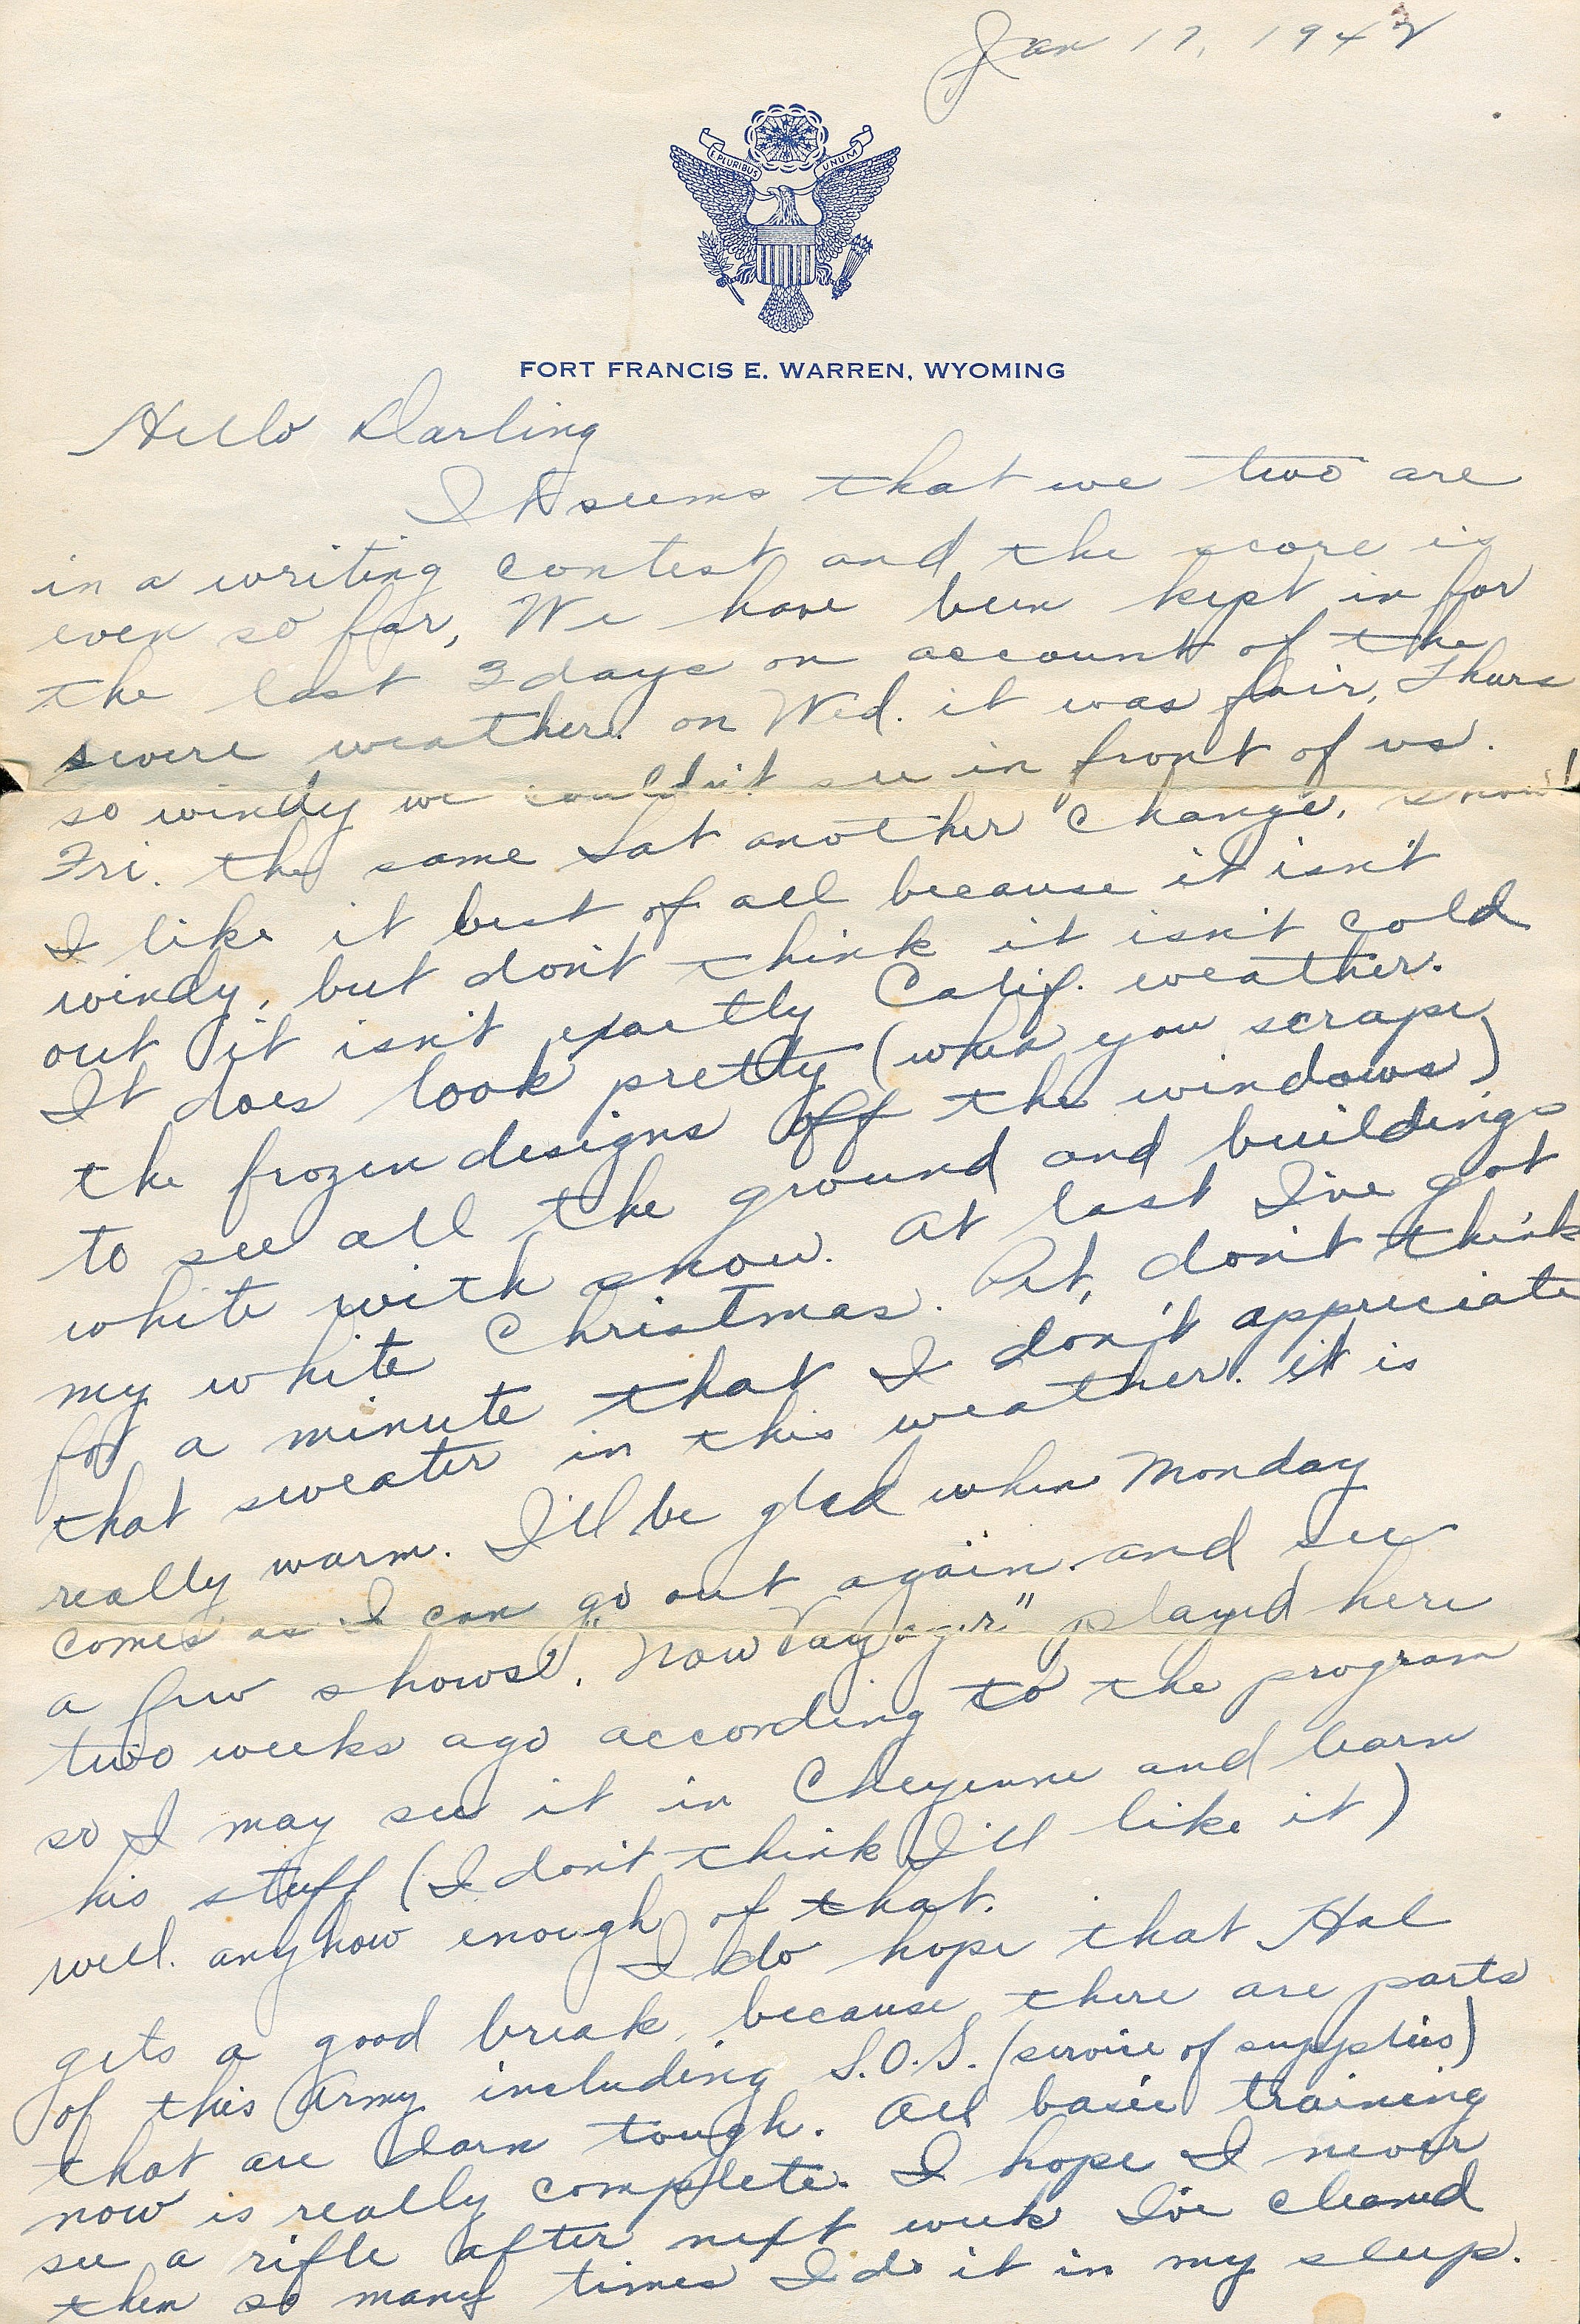 Jan 17, 1942
E PLURIBUS UNUM
FORT FRANCIS E. WARREN, WYOMING
Hello Darling
It seems that we two are
in a writing contest and the score is
even so far, We have been kept in for
the last 3 days on account of the
severe weather. on Wed. it was fair, Thurs
so windy we couldn't see in front of us.
Fri. the same Sat another change, snow!
I like it best of all because it isn't
windy, but don't think it isn't cold
out it isn't exactly Calif. weather.
It does look pretty (when you scrape
the frozen designs off the windows)
to see all the ground and buildings
white with snow. At last I've got
my white Christmas. Pet, don't think
for a minute that I don't appreciate
that sweater in this weather. it is
really warm. I'll be glad when Monday
comes as I can go out again and see
a few shows. "Now Voyager" played here
two weeks ago according to the program
so I may see it in Cheyenne and learn
his stuff (I don't think I'll like it)
well. anyhow enough of that.
I do hope that Hal
gets a good break, because there are parts
of this Army including S.O.S. (service of supplies)
that are darn tough. All basic training
now is really complete. I hope I never
see a rifle after next week I've cleaned
them so many times I do it in my sleep.